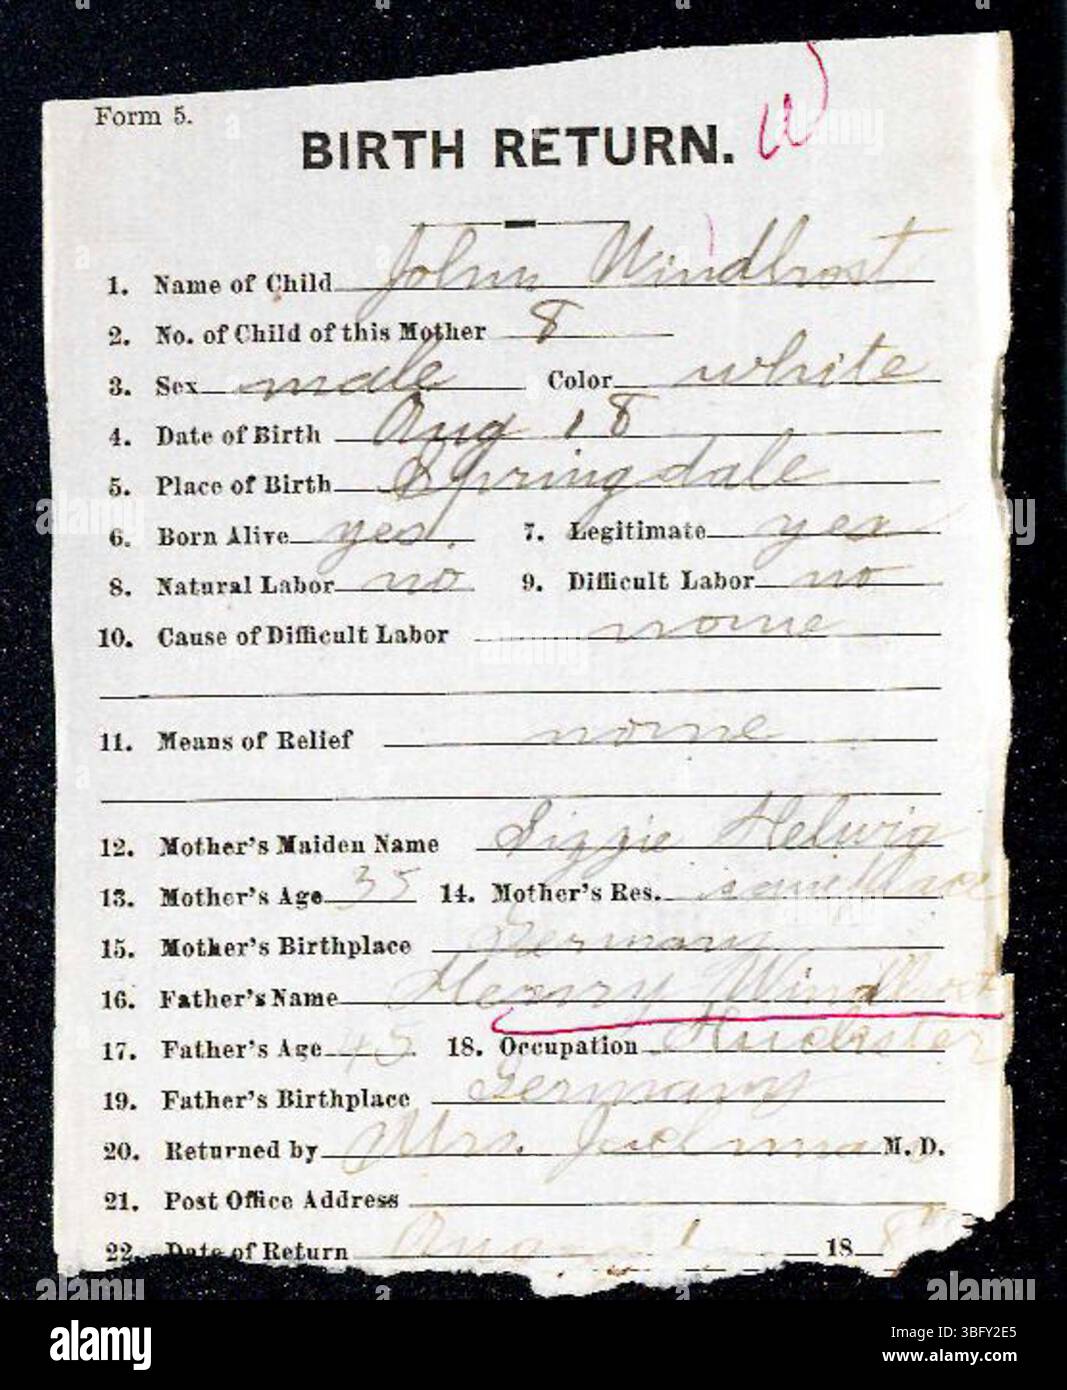 Form 5.
W
BIRTH RETURN.
1. Name of Child John Windhorst
2. No. of Child of this Mother 8
3. Sex male Color white
4. Date of Birth Aug 18
5. Place of Birth Springdale
6. Born Alive yes. 7. Legitimate yes
8. Natural Labor no 9. Difficult Labor no
10. Cause of Difficult Labor none
11. Means of Relief none
12. Mother's Maiden Name Lizzie Helwig
13. Mother's Age 35 14. Mother's Res. same place
15. Mother's Birthplace Germany
16. Father's Name Henry Windhorst
17. Father's Age 45 18. Occupation Huckster
19. Father's Birthplace Germany
20. Returned by Mrs. M. D.
21. Post Office Address
22. Date of Return 18 8
alamy
Image ID: 3BFY2E5
www.alamy.com